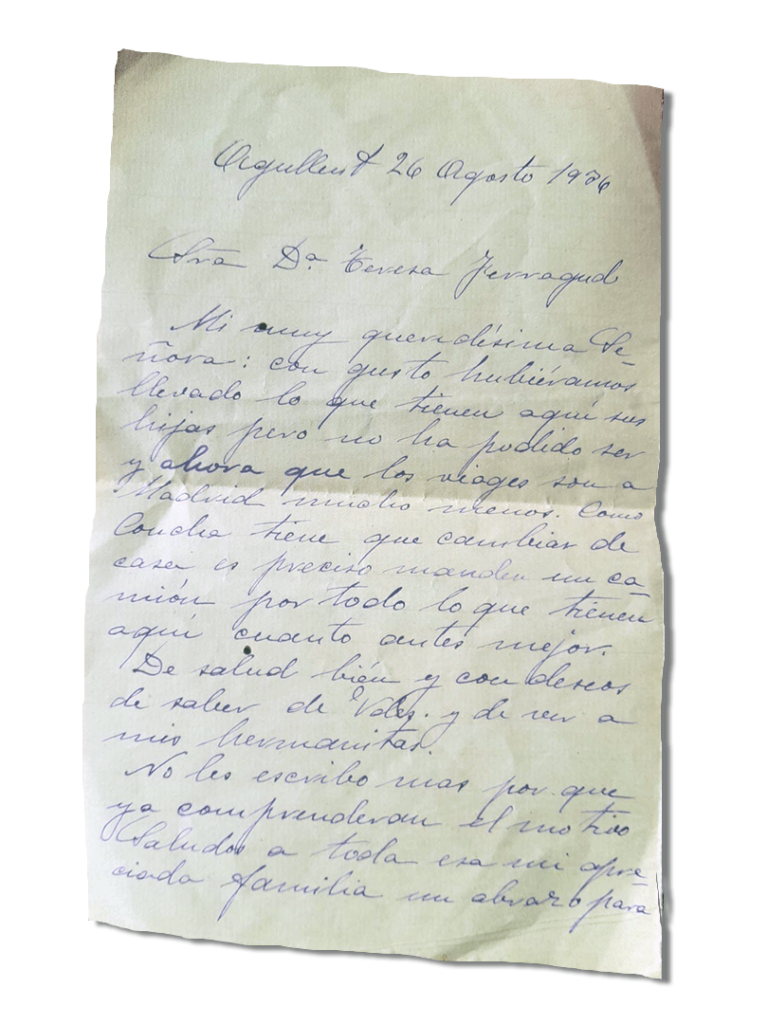 Agullent 26 Agosto 1936
Sra Dª Teresa Ferragud
Mi muy queridísima Se-
ñora: con gusto hubiéramos
llevado lo que tienen aquí sus
hijas pero no ha podido ser
y ahora que los viages son a
Madrid mucho menos. Como
Concha tiene que cambiar de
casa es preciso manden un ca-
mión por todo lo que tienen
aquí cuanto antes mejor.
De salud bién y con deseos
de saber de Vdes. y de ver a
mis hermanitas.
No les escribo mas por que
ya comprenderan el motivo
Saludos a toda esa mi apre-
ciada familia un abrazo para